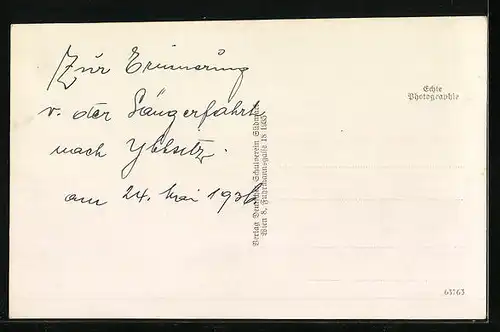 Zur Erinnerung
v. der Sängerfahrt
nach Ybbsitz.
am 24. Mai 1936.
Verlag Deutscher Schulverein Südmark
Wien 8, Fuhrmannsgasse 18
Echte
Photographie
63763